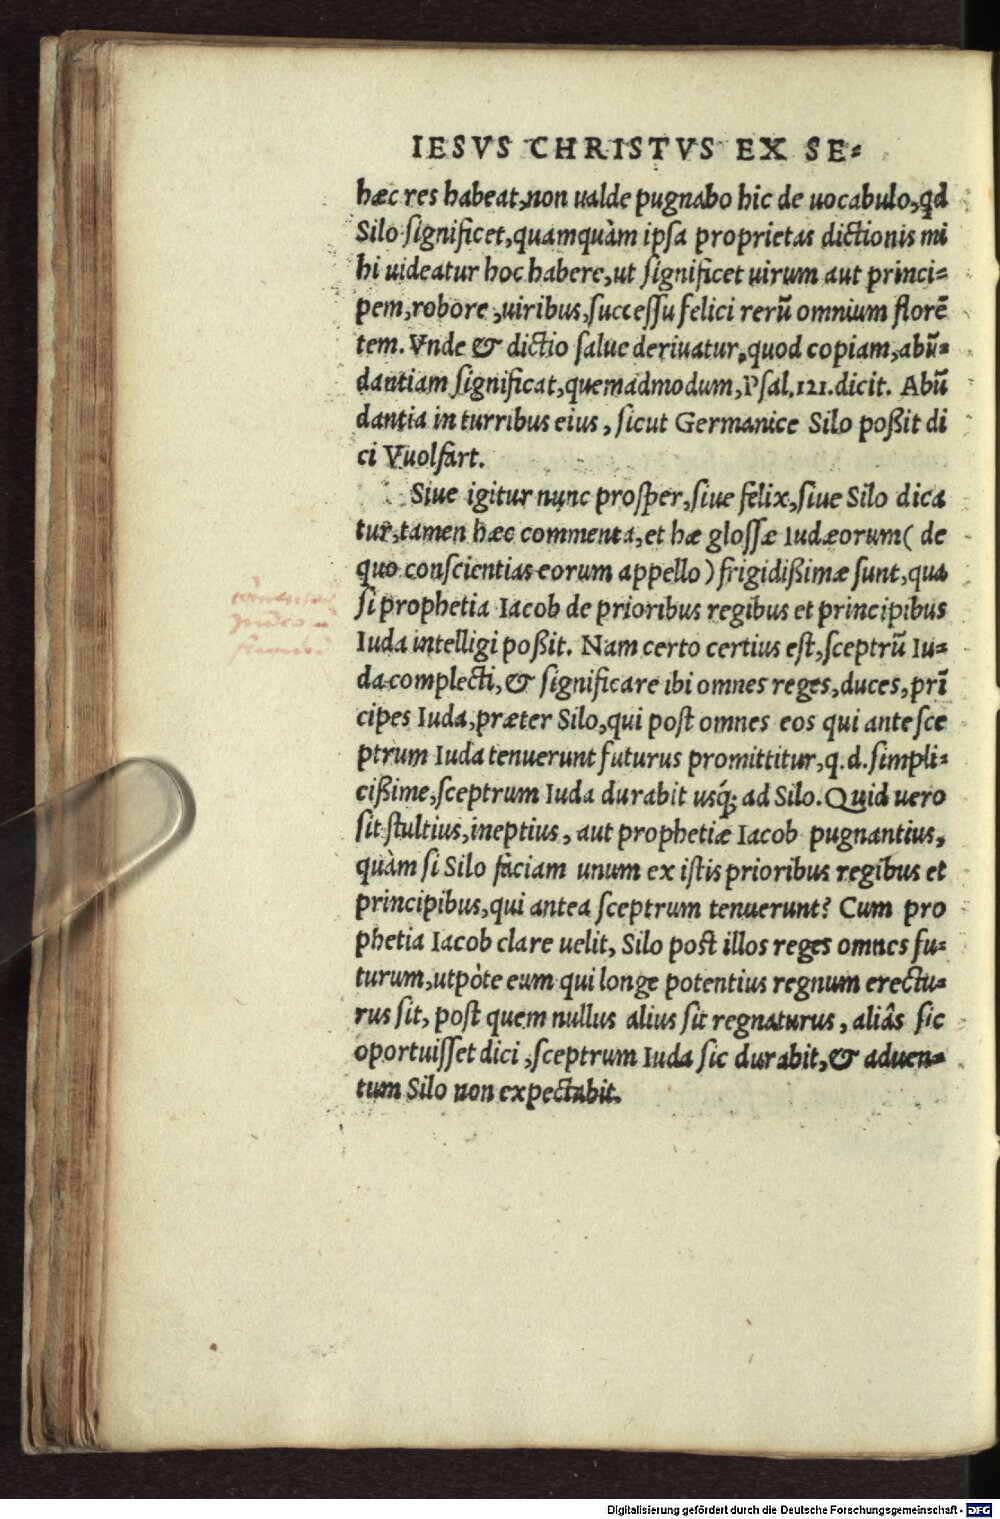 IESVS CHRISTVS EX SE-
hæc res habeat, non ualde pugnabo hic de uocabulo, qd
Silo significet, quamquàm ipsa proprietas dictionis mi
hi uideatur hoc habere, ut significet uirum aut princi-
pem, robore, uiribus, successu felici rerũ omnium florẽ
tem. Vnde & dictio salue deriuatur, quod copiam, abũ-
dantiam significat, quemadmodum, Psal. 121. dicit. Abũ
dantia in turribus eius, sicut Germanice Silo poßit di
ci Vuolfart.
Siue igitur nunc prosper, siue felix, siue Silo dica
tur, tamen hæc commenta, et hæ glossæ Iudæorum ( de
quo conscientias eorum appello ) frigidißimæ sunt, qua
si prophetia Iacob de prioribus regibus et principibus
Iuda intelligi poßit. Nam certo certius est, sceptrũ Iu-
da complecti, & significare ibi omnes reges, duces, prĩ
cipes Iuda, præter Silo, qui post omnes eos qui ante sce
ptrum Iuda tenuerunt futurus promittitur, q. d. simpli-
cißime, sceptrum Iuda durabit usq; ad Silo. Quid uero
sit stultius, ineptius, aut prophetiæ Iacob pugnantius,
quàm si Silo faciam unum ex istis prioribus regibus et
principibus, qui antea sceptrum tenuerunt? Cum pro
phetia Iacob clare uelit, Silo post illos reges omnes fu-
turum, utpòte eum qui longe potentius regnum erectu-
rus sit, post quem nullus alius sit regnaturus, aliâs sic
oportuisset dici, sceptrum Iuda sic durabit, & aduen-
tum Silo non expectabit.
Digitalisierung gefördert durch die Deutsche Forschungsgemeinschaft - DFG